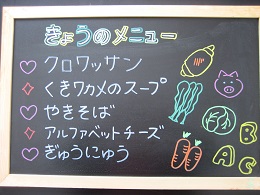 きょうのメニュー
♡ クロワッサン
◇ くきワカメのスープ
♡ やきそば
◇ アルファベットチーズ
♡ ぎゅうにゅう
B
A C